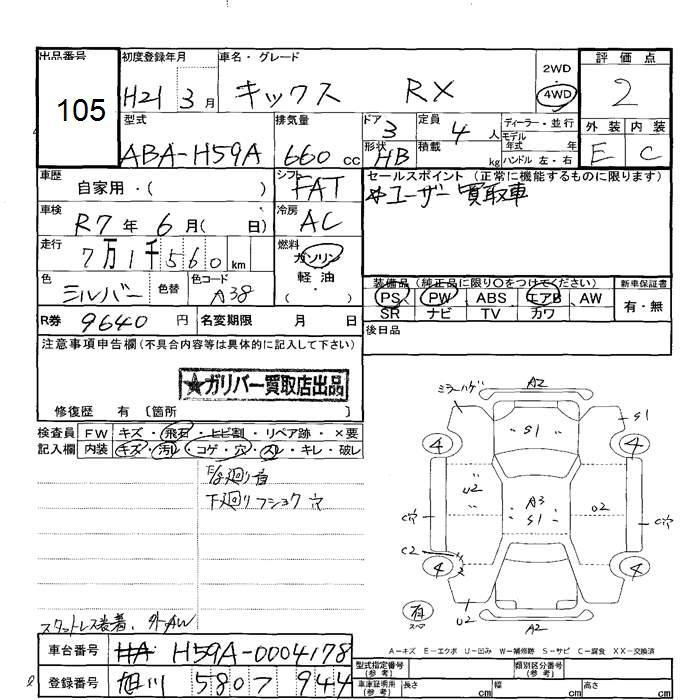 出品番号
105
初度登録年月
H21 3月
車名・グレード
キックス RX
2WD
4WD
評価点
2
外装 内装
E C
型式
ABA-H59A
排気量
660 cc
ドア
3
形状
HB
定員
4 人
積載
kg
ディーラー・並行
モデル年式 年
ハンドル 左・右
車歴
自家用・( )
シフト
FAT
車検
R7年 6月( 日)
冷房
AC
走行
7万1千560 km
燃料
ガソリン
軽油
( )
色
シルバー
色替
色コード
A38
R券 9640 円
名変期限 月 日
セールスポイント (正常に機能するものに限ります)
ユーザー買取車
装備品 (純正品に限り○をつけてください)
PS PW ABS エアB AW
SR ナビ TV カワ
新車保証書
有・無
後日品
注意事項申告欄(不具合内容等は具体的に記入して下さい)
★ガリバー買取店出品
修復歴 有 〔箇所 〕
検査員記入欄
FW キズ・飛石・ヒビ割・リペア跡・×要
内装 キズ・汚レ・コゲ・穴・スレ・キレ・破レ
下廻りフショク 穴
スタットレス装着、外AW
ミラーハゲ
A2
S1
S1
4
4
U2
A3
S1
U2
C穴
C穴
C2
4
4
有
スペア
U2
A2
A-キズ E-エクボ U-凹み W-補修跡 S-サビ C-腐食 XX-交換済
車台番号 H59A-0004178
登録番号 旭川 580ワ 944
型式指定番号(参考)
類別区分番号(参考)
車庫証明用(参考) 長さ cm 幅 cm 高さ cm